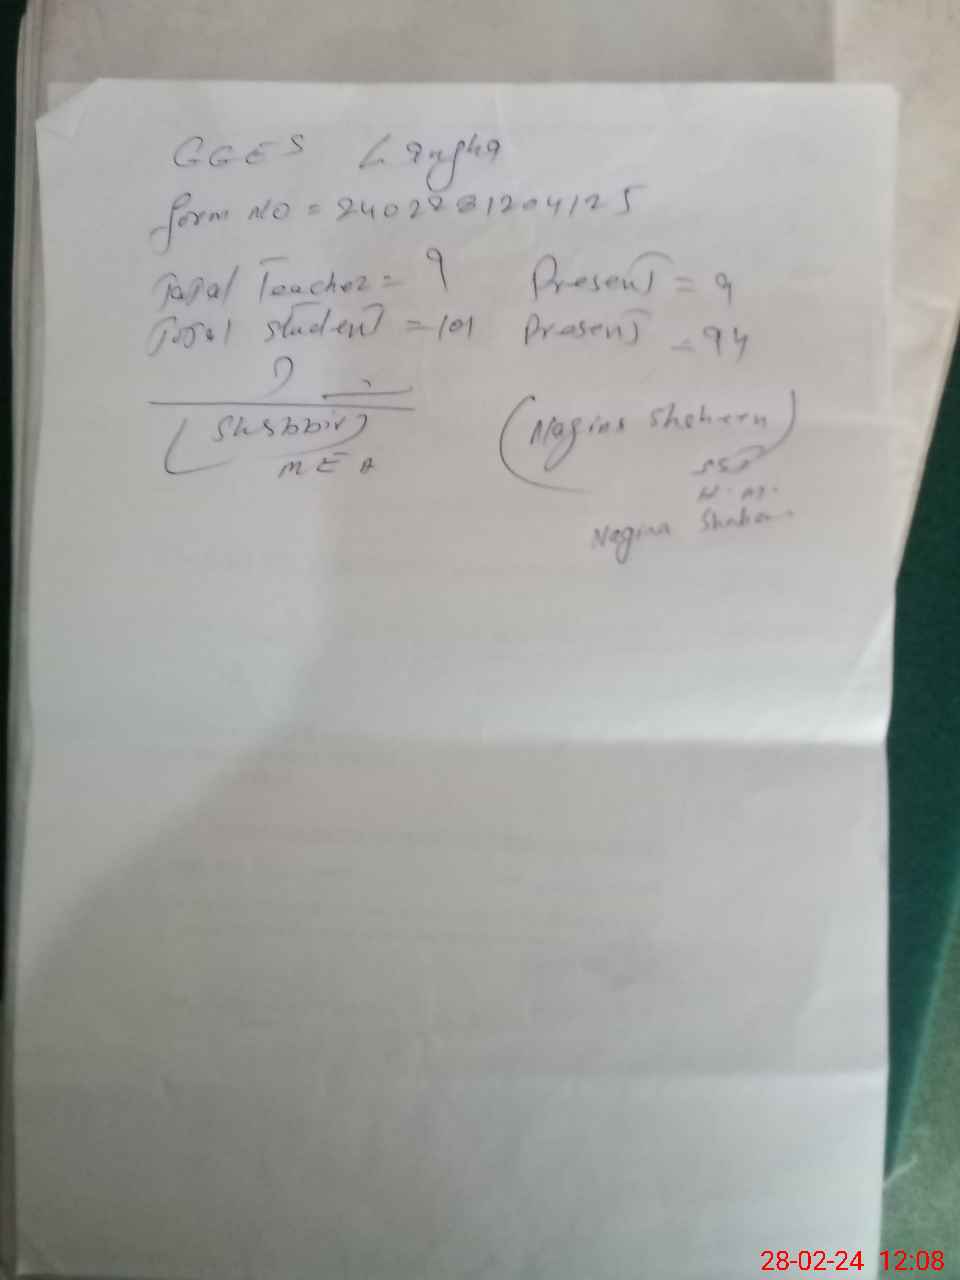 GGES Langha
form NO = 2402281204125
Total Teacher = 9 Present = 9
Total student = 101 Present = 94
(Shabbir)
MEA
(Nagina Shaheen)
SST
H.M.
Nagina Shaheen
28-02-24 12:08